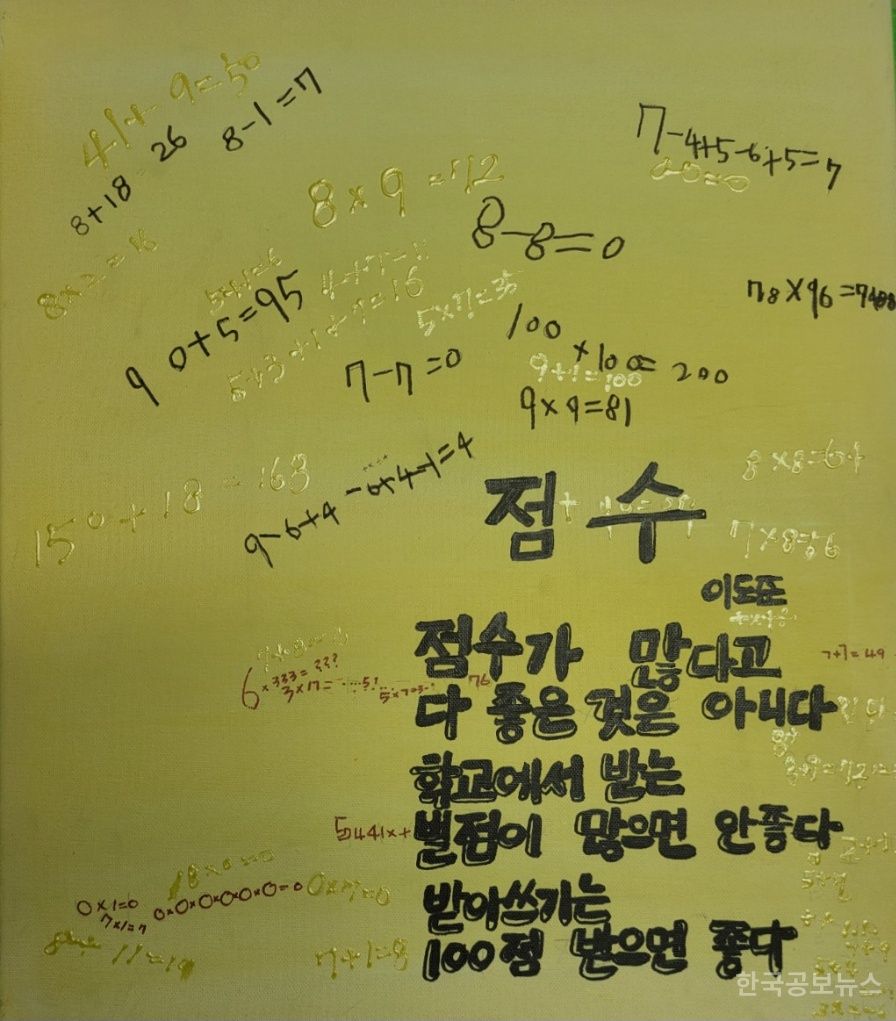 41+9=50
8+18 26
8-1=7
7-4+5-6+5=7
0-0=0
8×9=72
8-8=0
8×2=16
5+1=6
90+5=95
5+3+1+7=16
5×7=35
78×96=7488
7-7=0
100
×100=200
9+1=100
9×9=81
150+18=168
9-6+4-6+4-1=4
8×8=64
7×8=56
점수
이도준
점수가 많다고
다 좋은 것은 아니다
학교에서 받는
벌점이 많으면 안좋다
받아쓰기는
100점 받으면 좋다
7+7=49
6×333=???
3×17=
76
5441×+
18×0=0
0×1=0
7×1=7
0×0×0×0×0×0=0
0×7=0
11=19
7+1=8
한국공보뉴스